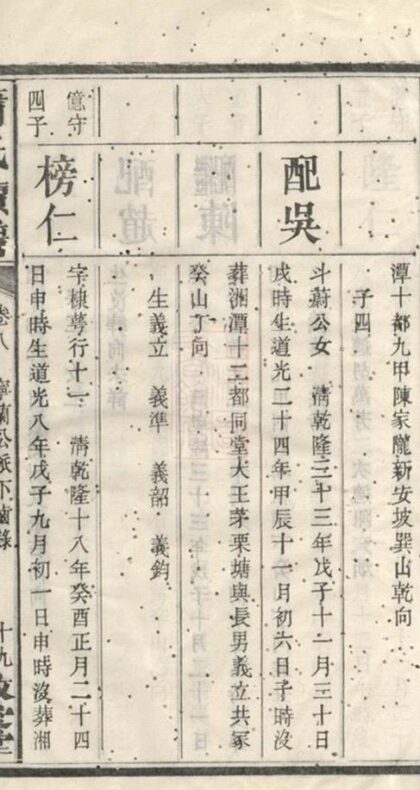 潭十都九甲陳家隴新安坡巽山乾向
子四
配吳
斗蔚公女　清乾隆三十三年戊子十一月三十日
戌時生道光二十四年甲辰十一月初六日子時沒
葬湘潭十三都同堂大王茅栗塘與長男義立共冢
癸山丁向
生義立　義準　義韶　義鈞
億守
四子
榜仁
字棣萼行十一　清乾隆十八年癸酉正月二十四
日申時生道光八年戊子九月初一日申時沒葬湘
卷八
蘭公派下齒錄
十九